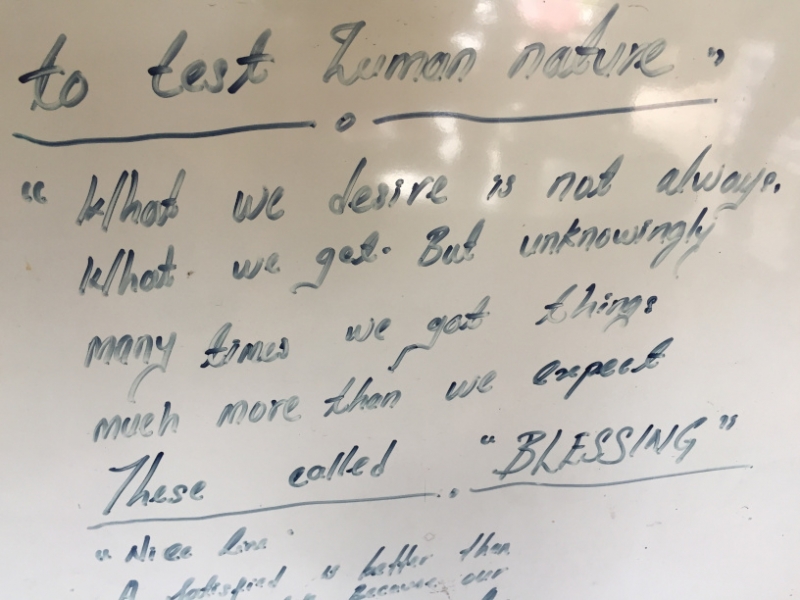 to test human nature"
"What we desire is not always.
What. we get. But unknowingly
many times we got things
much more than we expect
These called "BLESSING"
"Nice line
A is better than
Because our